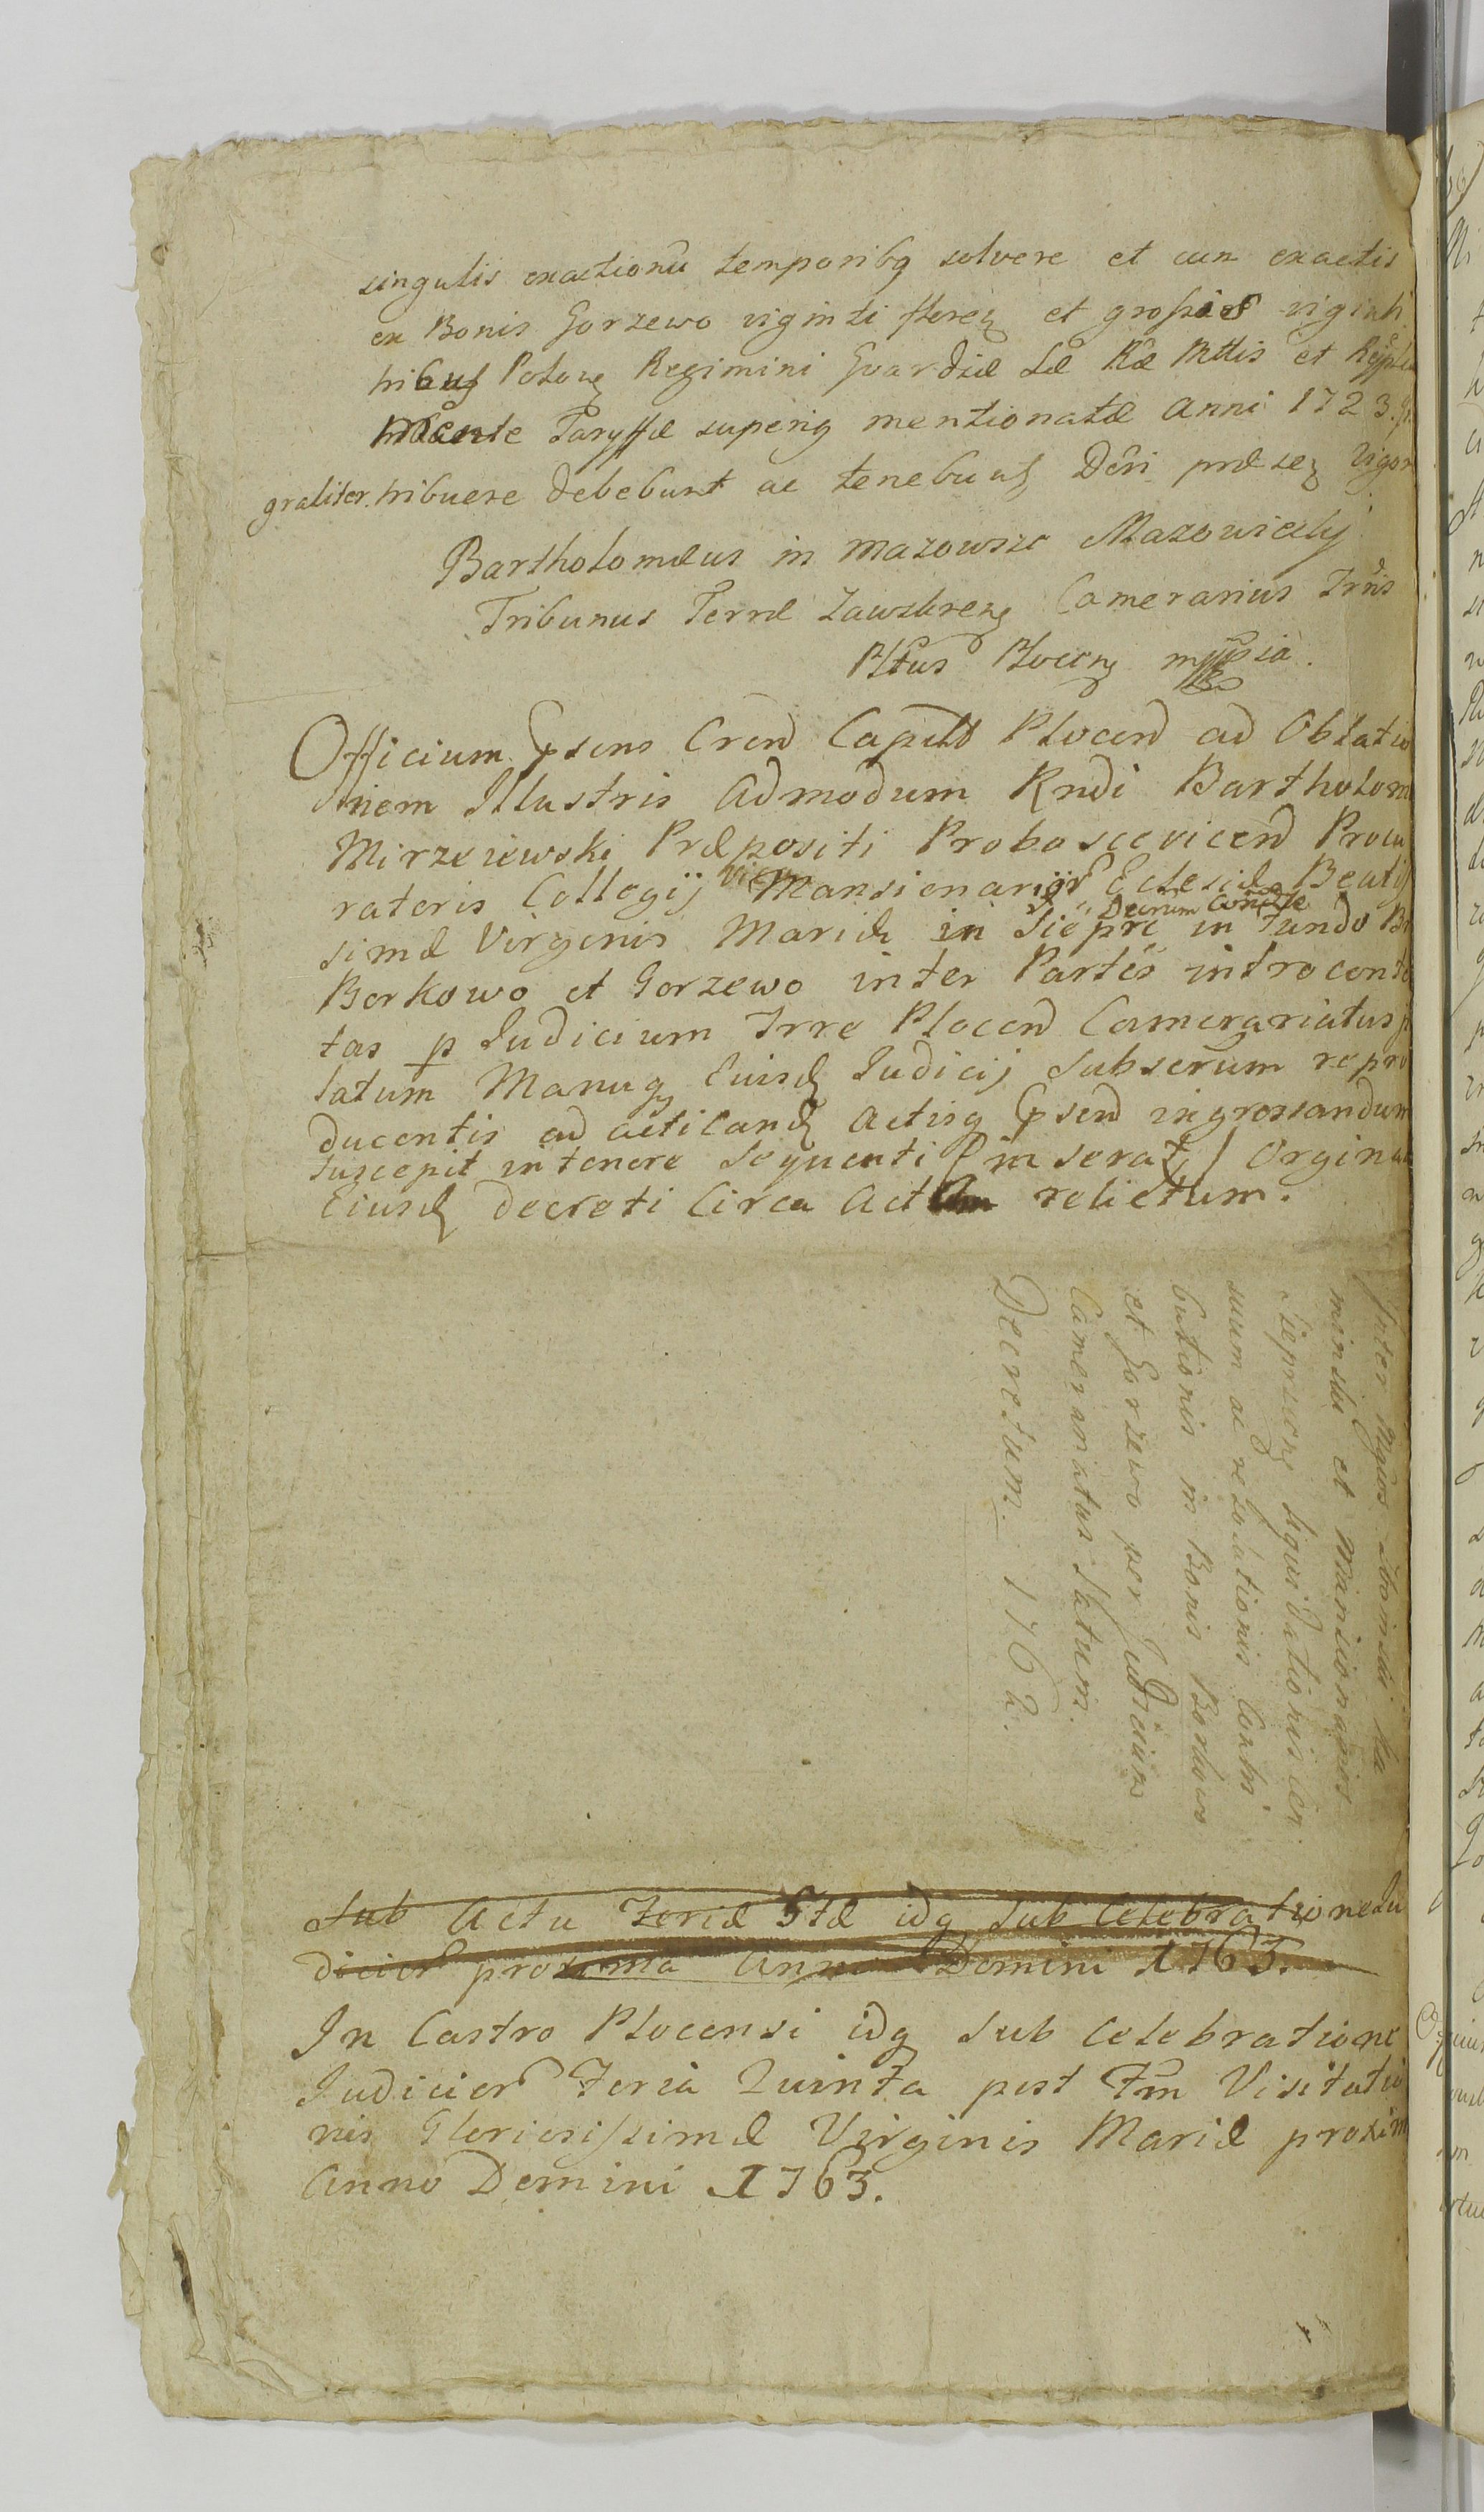 singulis exactionũ temporibq solvere et cum exactis
ex Bonis Gorzewo viginti floreꝫ et grossis viginti
tribus Poloꝫ Regimini Gvardiæ Sæ Ræ Mttis et Reypltæ
Taryffæ superiq mentionatæ Anni 1723.
graliter. tribuere debebunt ac tenebuntꝫ Dẽri præseꝫ Vigore
Bartholomæus in Mazowsze Mazowiecky
Tribunus Terræ Zawskreꝫ Camerarius Trris
Pltus Plocenꝫ mppia.
Officium Ppsens Cren Capitl Plocen ad Oblatio
nem Illustris Admodum Rndi Bartholom
Mirzeiewski Præpositi Proboscevicen Procu
ratoris Collegij Mansionarior Eclesiæ Beatis
simæ Virginis Mariæ in Siepre Decrum Comisse in Fundo B
Borkowo et Gorzewo inter Partes introconten
tas p Judicium Trre Plocen Camerariatus
latum Manuq Eiusd Judicij Subscrum repro
ducentis ad acticand Actisq Ppsen ingrossandum
suscepit in tenore sequenti (inseratꝫ) Orginal
Eiusd Decreti Circa Actum relictum.
Inter Mgcos
minski et Mansionarios
Sieprcenꝫ liquidationis cer
suum ac rezolationis Contri
butionis in Bonis Borkowo
et Gorzewo per Judicium
Camerariatus Latum.
Decretum. 1762.
Sub Actu Feriæ 5tæ idq Sub Celebratione Ju
dicior proxima Anno Domini 1763.
In Castro Plocensi idq Sub Celebratione
Judicior Feria Quinta post Ftm Visitatio
nis Gloriosissimæ Virginis Mariæ proxim
Anno Domini 1763.